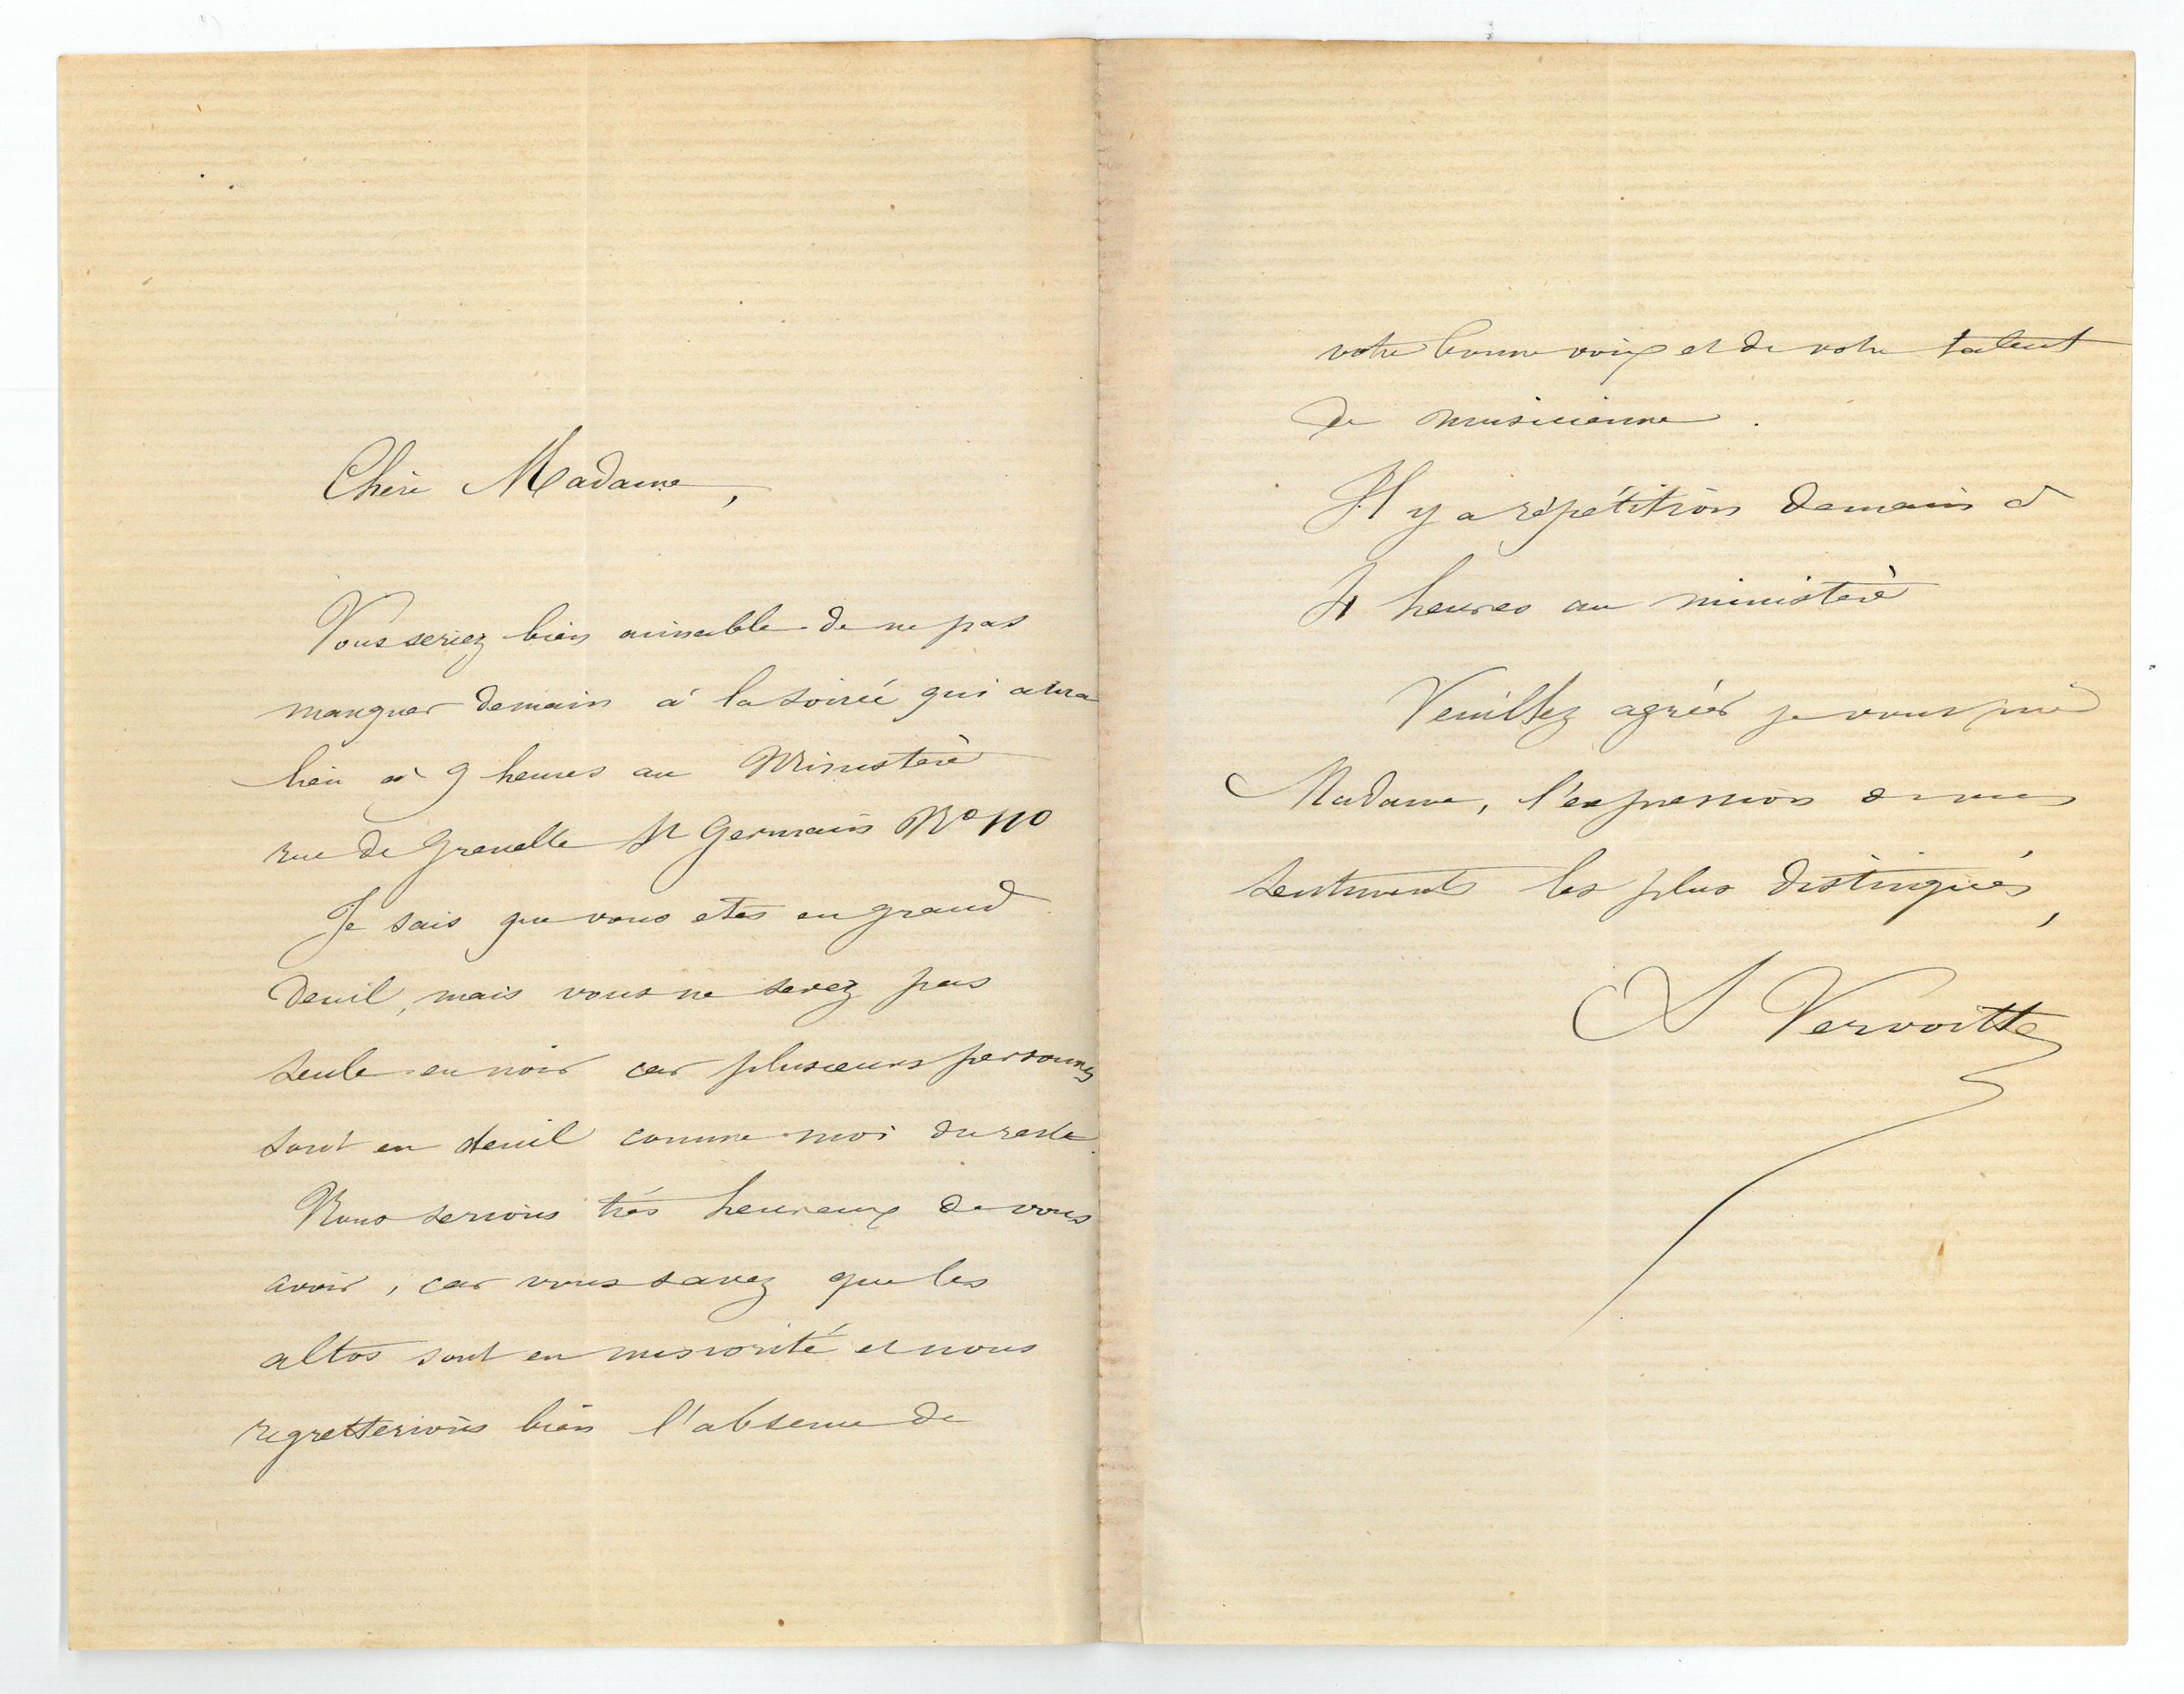 Chère Madame,
Vous seriez bien aimable de ne pas
manquer demain à la soirée qui aura
lieu à 9 heures au Ministère
rue de Grenelle St Germain No 110
Je sais que vous etes en grand
deuil, mais vous ne serez pas
seule en noir car plusieurs personnes
sont en deuil comme moi du reste.
Nous serions très heureux de vous
avoir, car vous savez que les
altos sont en minorité et nous
regretterions bien l'absence de
votre bonne voix et de votre talent
de musicienne.
Il y a répétition demain à
4 heures au ministère
Veuillez agréer je vous prie
Madame, l'expression de mes
sentiments les plus distingués,
Vervoitte